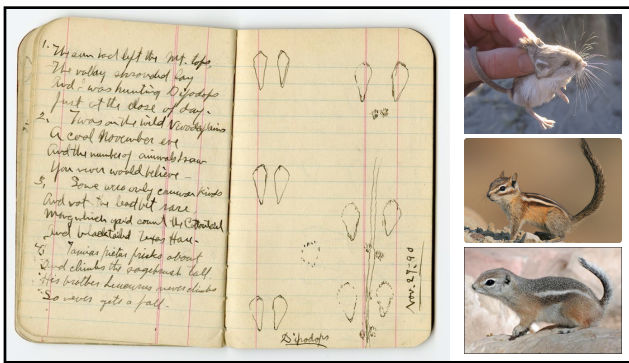 1. The sun had left the Mt. tops
The valley shrouded lay
And I was hunting Dipodops
just at the close of day.
2. Twas on the wild
A cool November eve
And the number of animals I saw
You never would believe -
3. Some were only common kinds
And not the least bit rare
Mong which could count the Cottontail
And blacktailed Texas Hare.
4. Tamias pictus frisks about
And climbs the sagebrush tall
His brother Leucurus never climbs
So never gets a fall.
Dipodops
Nov. 27-90